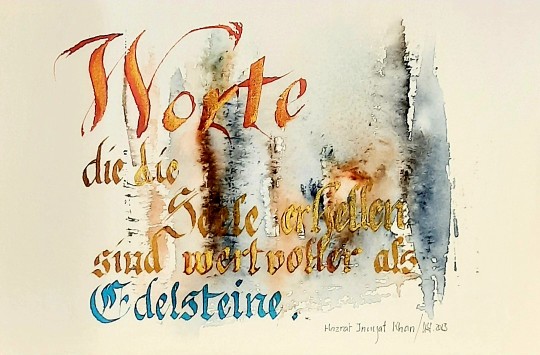 Worte
die die
Seele erhellen
sind wertvoller als
Edelsteine.
Hazrat Inayat Khan / 2023